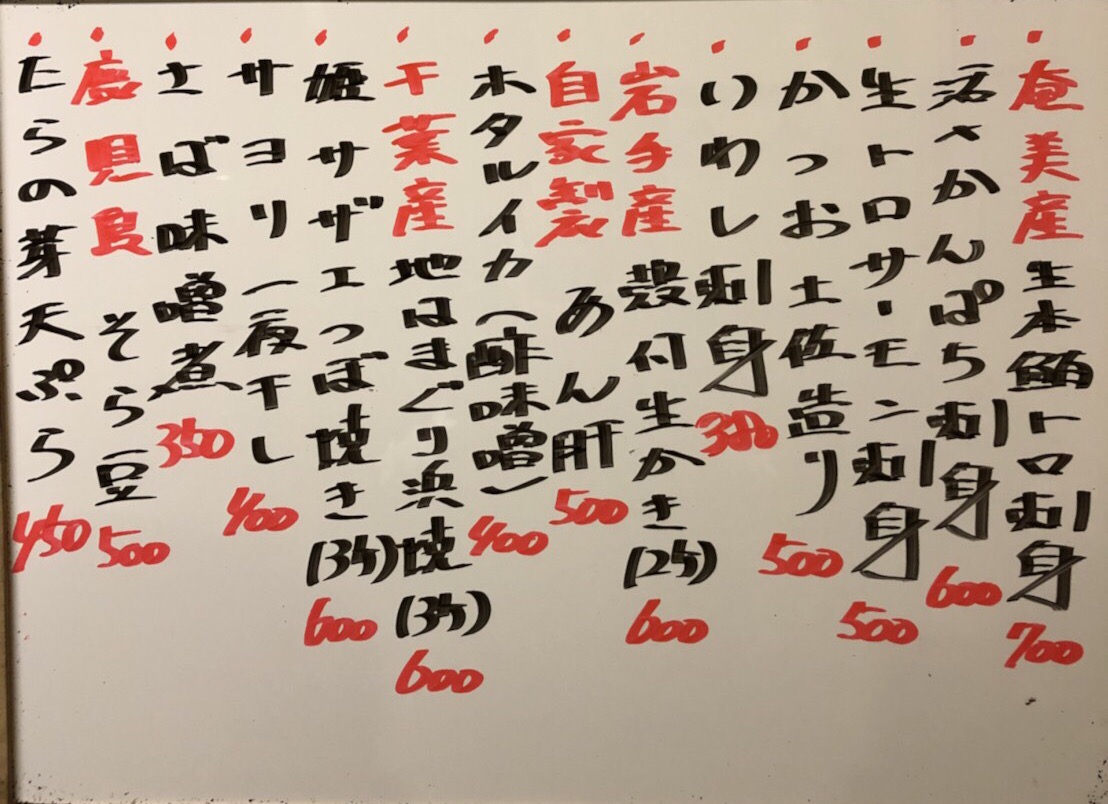 ・奄美産 生本鮪トロ刺身 700
・活〆かんぱち刺身 600
・生トロサーモン刺身 500
・かつお土佐造り 500
・いわし刺身 380
・岩手産 殻付生かき(2ケ) 600
・自家製 あん肝 500
・ホタルイカ(酢味噌) 400
・千葉産 地はまぐり浜焼(3ケ) 600
・姫サザエつぼ焼き(3ケ) 600
・サヨリ一夜干し 400
・さば味噌煮 350
・鹿児島 そら豆 500
・たらの芽天ぷら 450